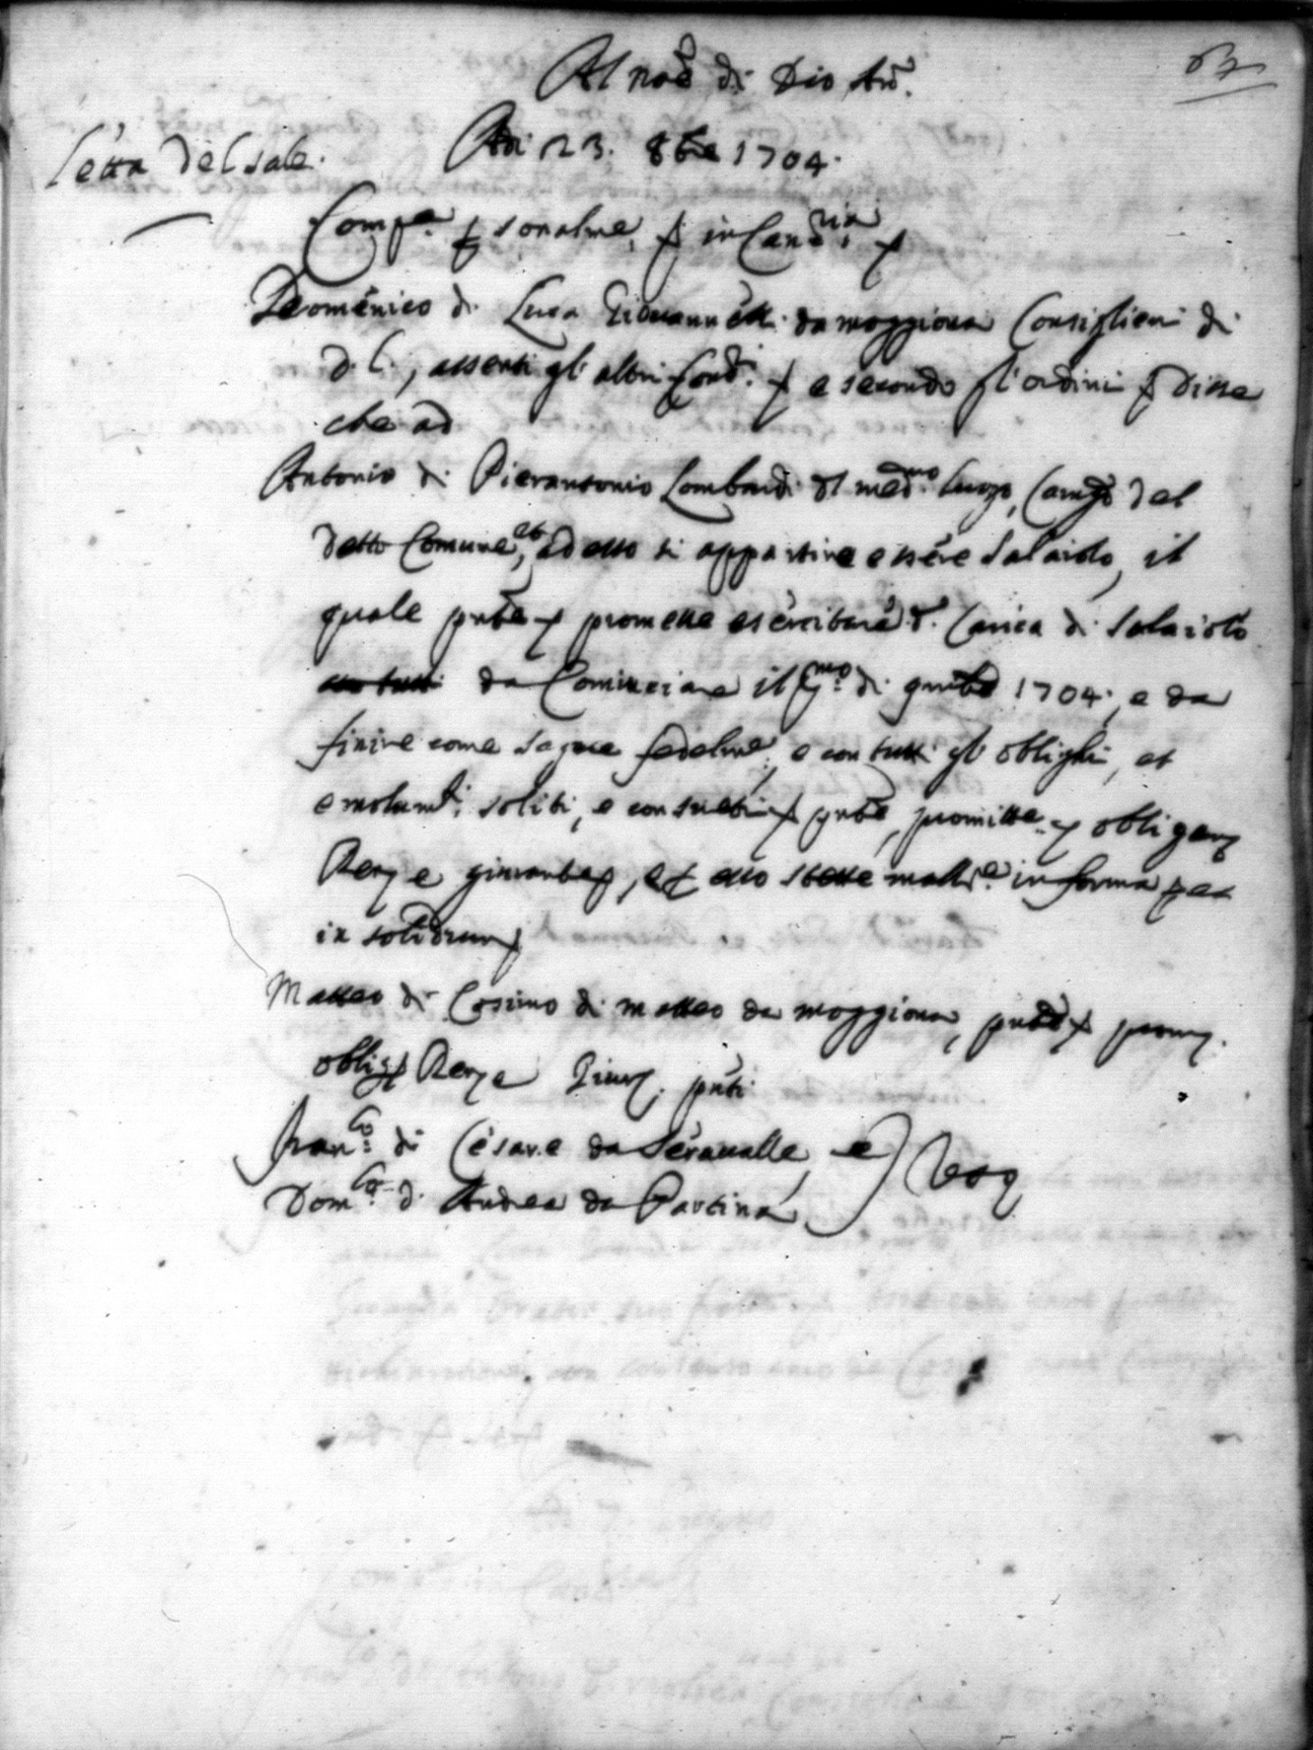 67
Al no͞e di Dio Am͞.
Adi 23. 8bre 1704.
Letta del sale.
Comp.e personalme, in Canc.ria
Domenico di Luca Giovannetti da moggiona Consiglieri di
d. C., assenti gli altri e secondo gl'ordini Disse
che ad
Antonio di Pierantonio Lombardi del med.mo luogo, Camgo del
detto Comune, et ad esso si appartiene essere Salaiolo, il
quale pnte promette esercitare d. Carica di Salaiolo
da Cominciare il p.mo di gnbre 1704, e da
finire come segue fedelme, e con tutti gl'oblighi, et
emolumti soliti, e consueti pnte, promitte obligan
Ren e giurante, e p esso stesse mall.e in forma et
in solidum
Matteo di Cosimo di matteo da moggiona, pnte prom.
oblig Ren e Giur. pnti
Fran.co di Cesare da Seravalle, e
Dom.co d. Andrea da Partina Test